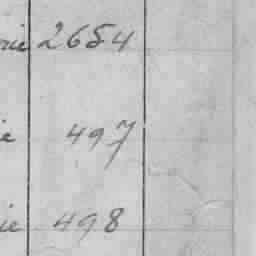 rie 2654
ie 497
ie 498